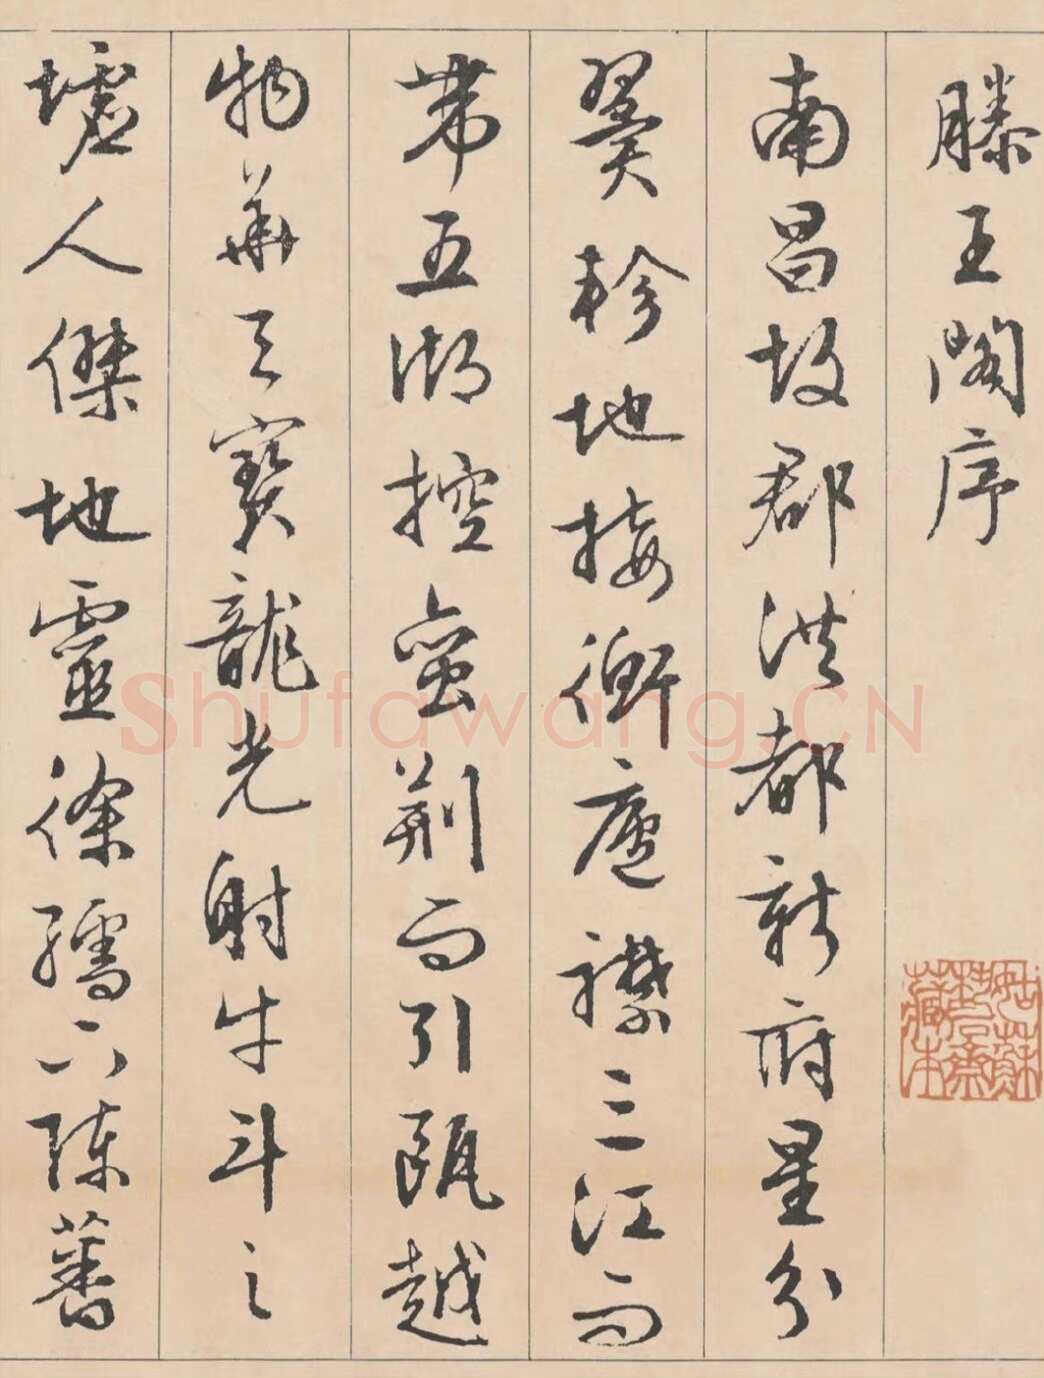 滕王閣序
南昌故郡洪都新府星分
翼軫地接衡廬襟三江而
帶五湖控蠻荆而引甌越
物華天寶龍光射牛斗之
墟人傑地靈徐孺下陳蕃
Shufawang.CN